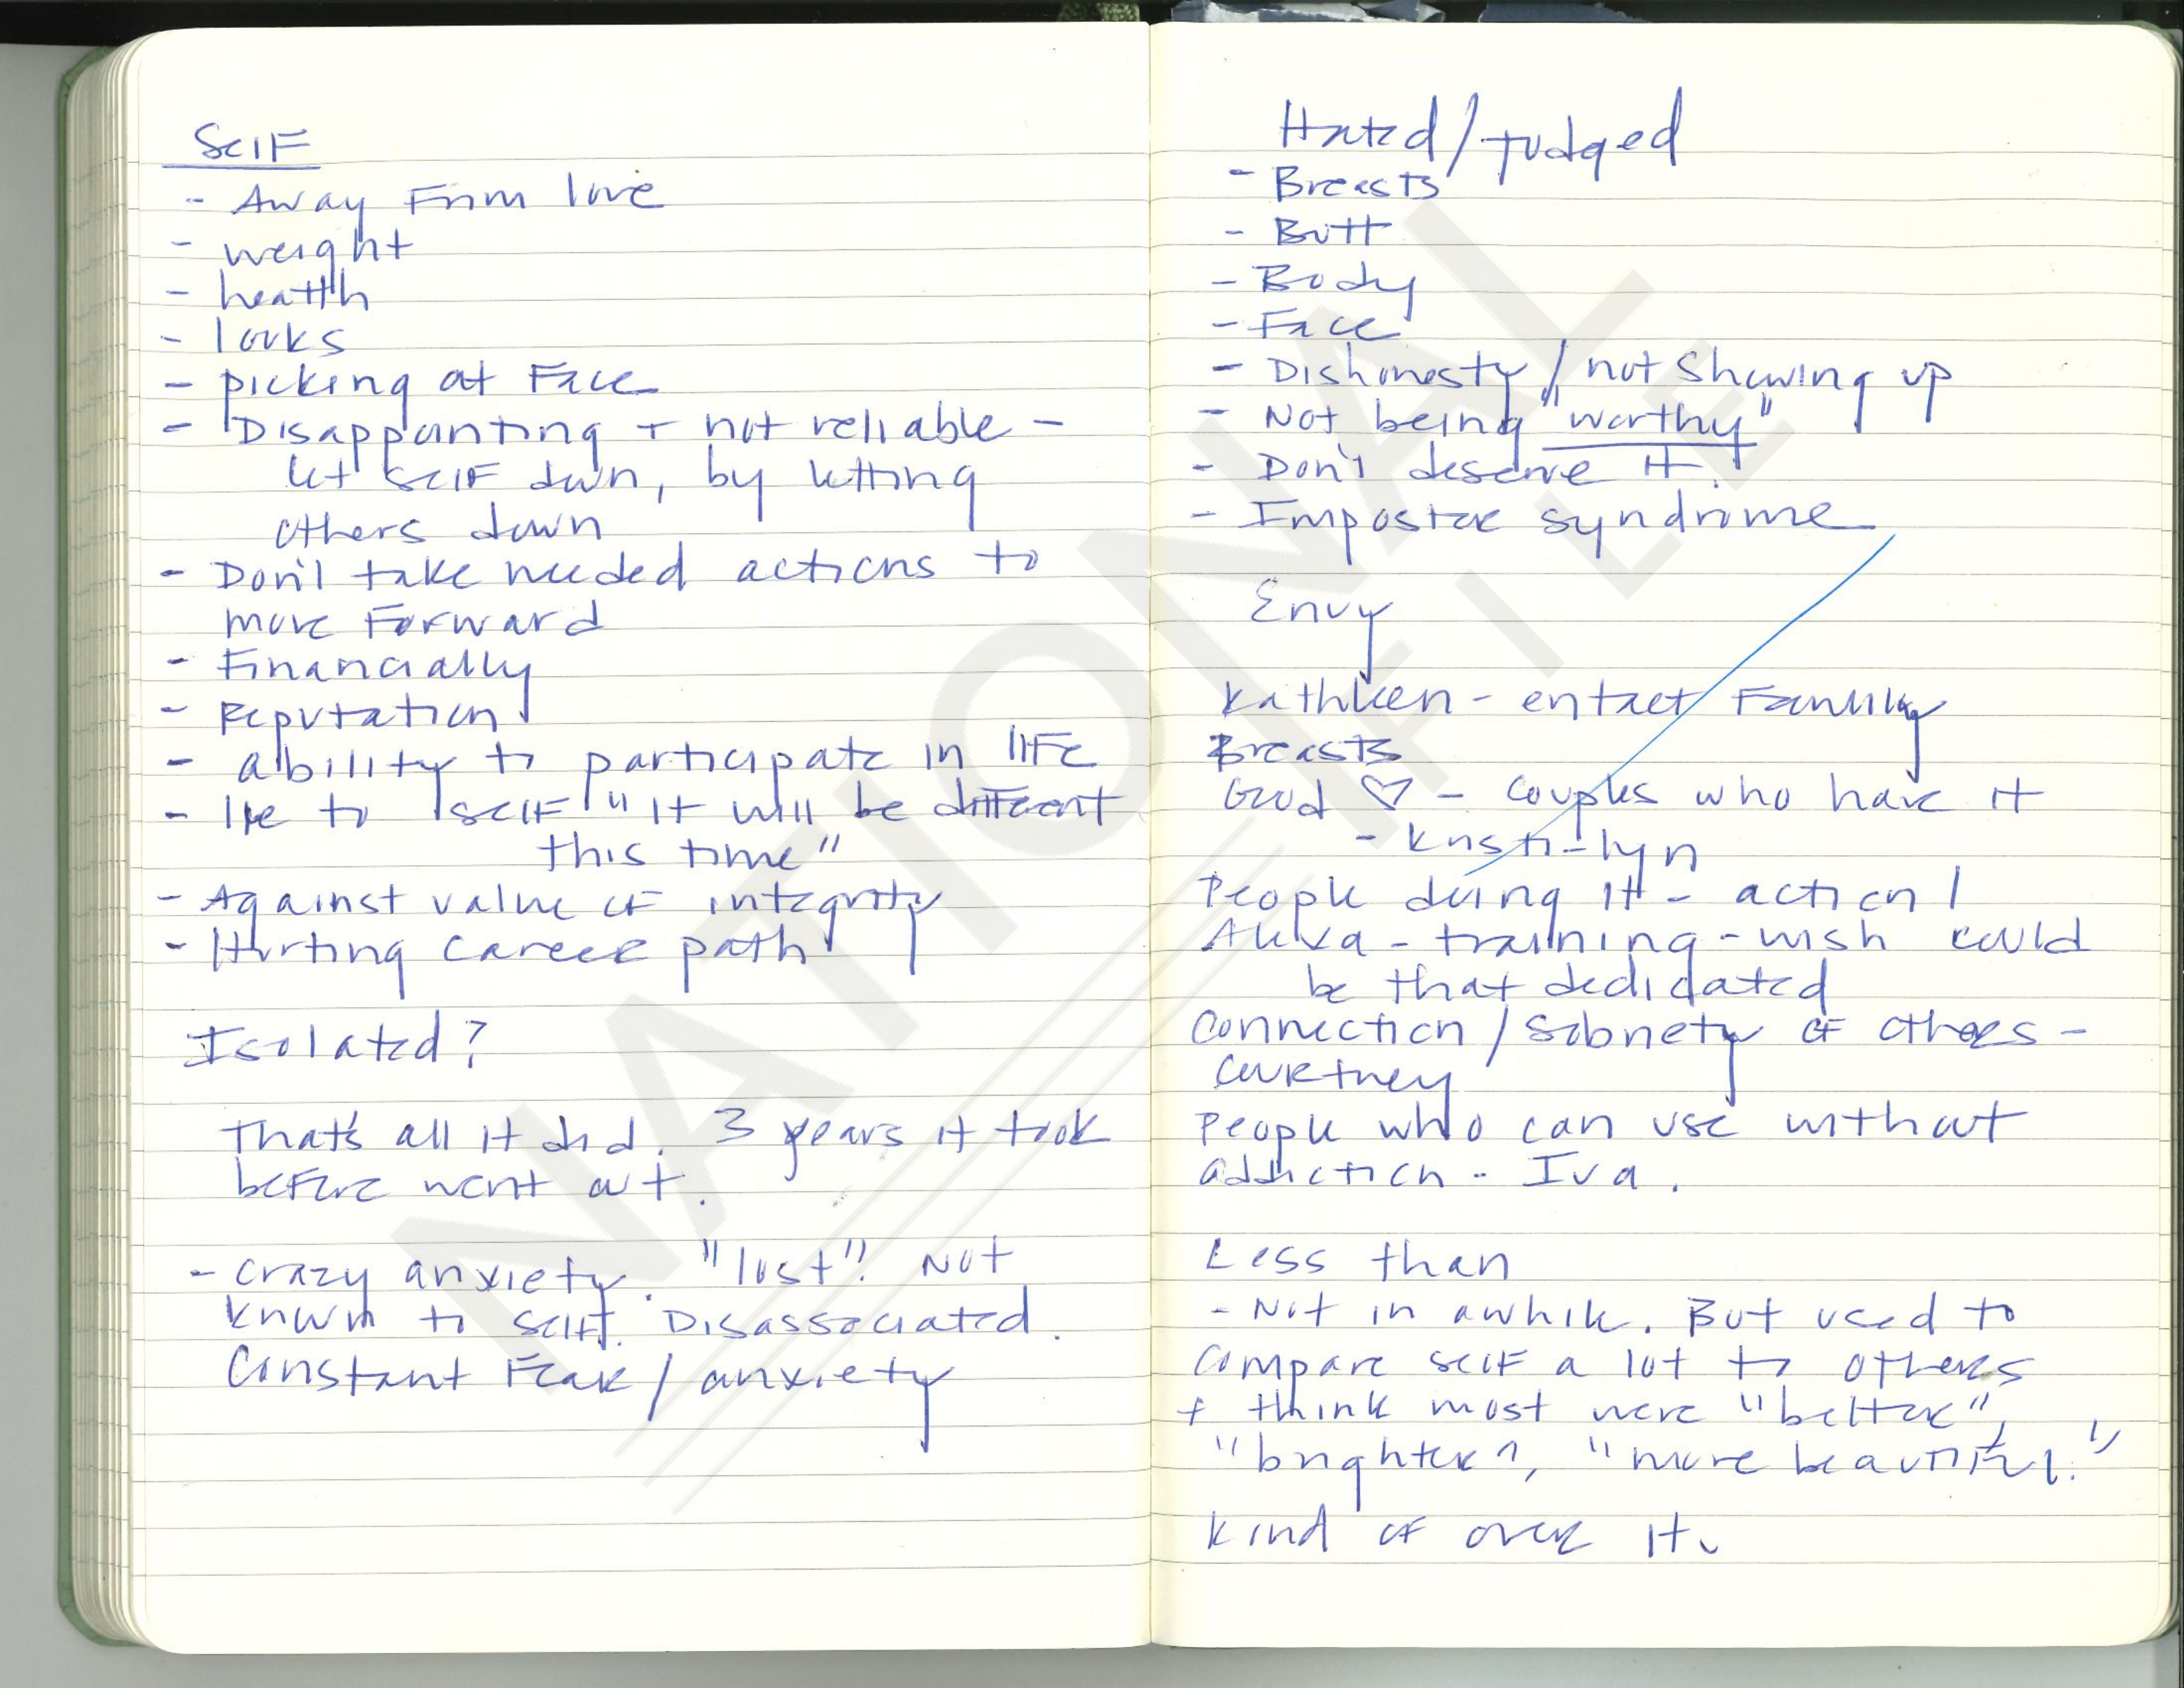 Self
- Away From love
- weight
- health
- looks
- picking at Face
- Disappointing + not reliable -
let self down, by letting
others down
- Don't take needed actions to
move Forward
- Financially
- Reputation
- ability to participate in life
- lie to self "it will be different
this time"
- Against value of integrity
- Hurting career path
Isolated?
That's all it did. 3 years it took
before went out.
- crazy anxiety. "lost". Not
known to self. Disassociated.
Constant Fear / anxiety
Hated / Judged
- Breasts
- Butt
- Body
- Face
- Dishonesty / not showing up
- Not being "worthy"
- Don't deserve it.
- Imposter syndrome
Envy
Kathleen - entact Family
Breasts
Good ♡ - couples who have it
- Kristi-lyn
People doing it - action /
- training - wish could
be that dedidated
Connection / Sobriety of others -
Courtney
People who can use without
addiction - Iva.
Less than
- Not in awhile. But used to
compare self a lot to others
+ think most were "better",
"brighter", "more beautiful."
Kind of over it.
NATIONAL
FILE